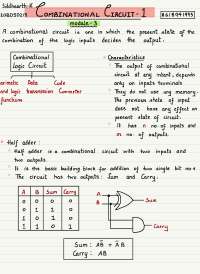 Siddharth K
COMBINATIONAL CIRCUIT - I
module-3
A combinational circuit is one in which the present state of the
combination of the logic inputs decides the output.
Combinational
Logic Circuit
Data
Code
and logic transmission Converter
functions
Characteristics
The output of combinational
circuit at any instant, depends
only on inputs terminals
They do not use any memory.
The previous state of input
does not have any effect on
present state of circuit.
It has n no of inputs and
m no of outputs
Half adder :
Half adder is a combinational circuit with two inputs and
two outputs.
It is the basic building block for addition of two single bit no.s
The circuit has two outputs: Sum and Carry.
A B Sum Carry
0 0 0 0
0 1 1 0
1 0 1 0
1 1 0 1
A
B
Sum
Carry
Sum : AB̅ + A̅B
Carry : AB